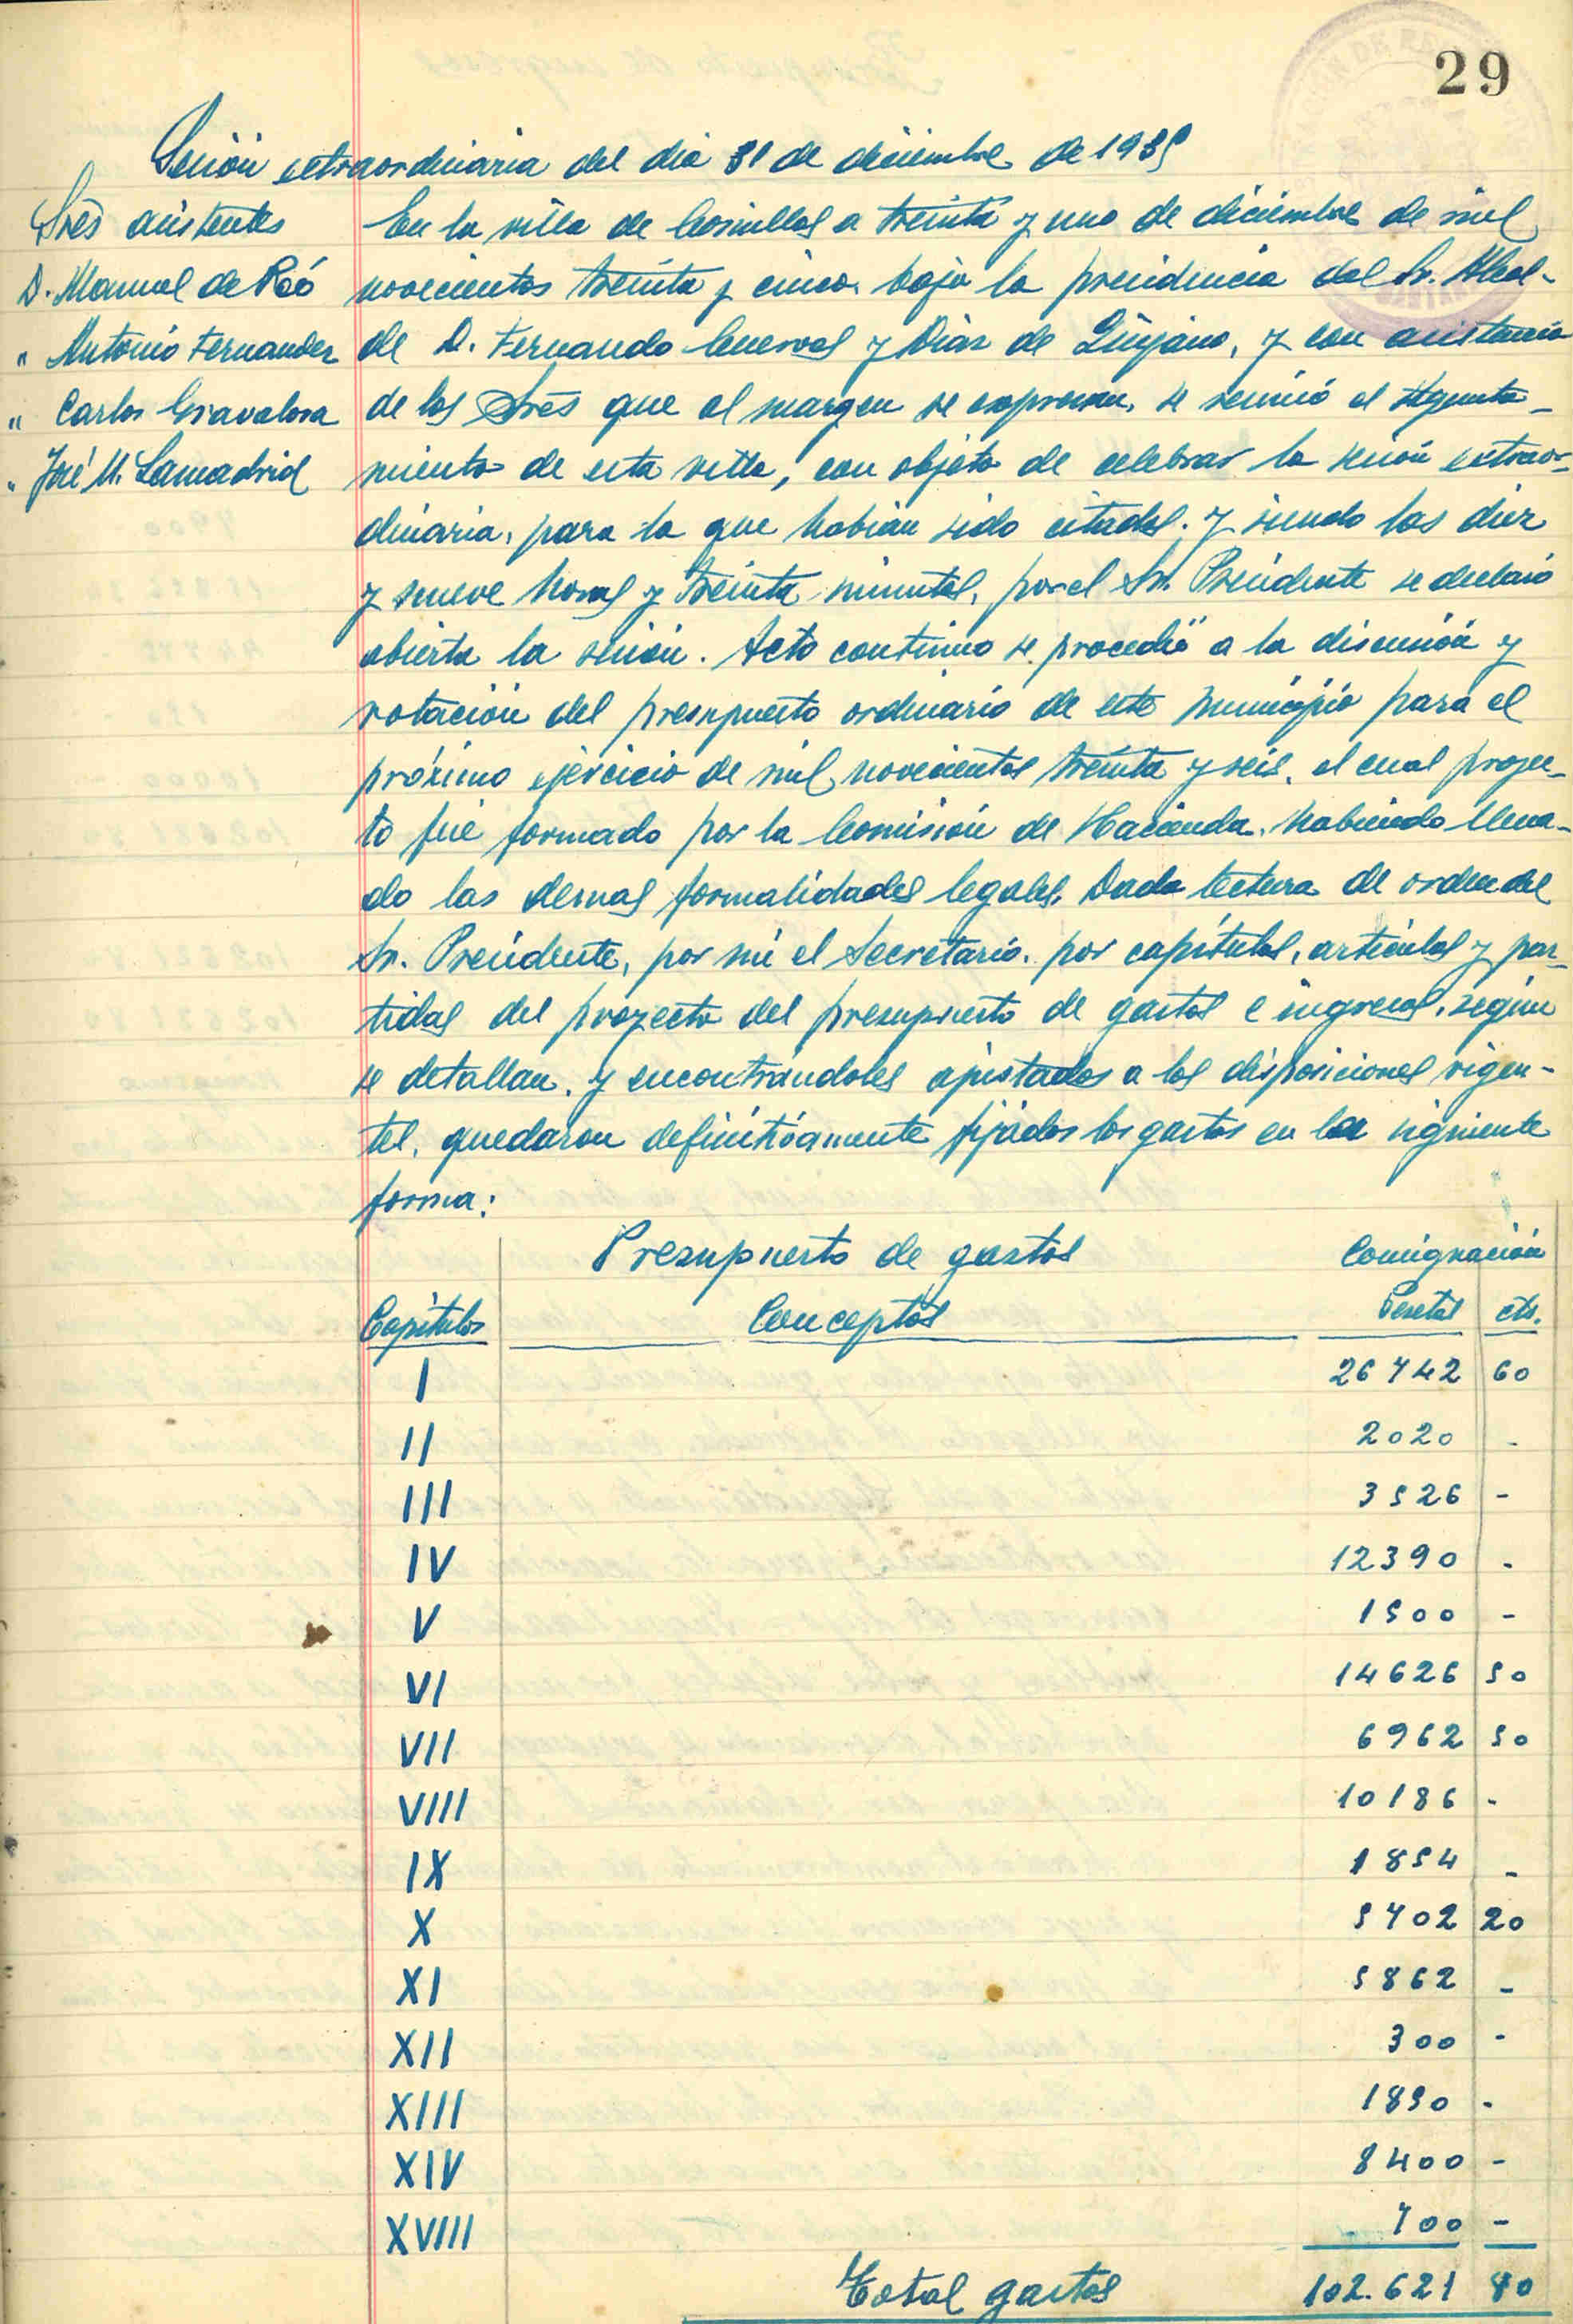 29
Sesión extraordinaria del dia 31 de diciembre de 1935
Srēs asistentes
D. Manuel de Poó
" Antonio Fernandez
" Carlos Gravalosa
" José M. Lamadrid
En la villa de Comillas a treinta y uno de diciembre de mil
novecientos treinta y cinco, bajo la presidencia del Sr. Alcal-
de D. Fernando Cuevas y Diaz de Quijano, y con asistencia
de los Srēs que al margen se expresan, se reunió el Ayunta-
miento de esta villa, con objeto de celebrar la sesión extraor-
dinaria, para la que habian sido citados; y siendo las diez
y nueve horas y treinta minutos, por el Sr. Presidente se declaró
abierta la sesión. Acto continuo se procedió a la discusión y
votación del presupuesto ordinario de este Municipio para el
próximo ejercicio de mil novecientos treinta y seis, el cual proyec-
to fué formado por la Comisión de Hacienda, habiendo llena-
do las demas formalidades legales. Dada lectura de orden del
Sr. Presidente, por mi el Secretario, por capítulos, articulos y par-
tidas del proyecto del presupuesto de gastos e ingresos, según
se detallan, y encontrándoles ajustados a las disposiciones vigen-
tes, quedaron definitivamente fijados los gastos en la siguiente
forma:
Presupuesto de gastos Consignación
Capítulos Conceptos Pesetas cts.
I 26742 60
II 2020 -
III 3526 -
IV 12390 -
V 1500 -
VI 14626 50
VII 6962 50
VIII 10186 -
IX 1854 -
X 5702 20
XI 5862 -
XII 300 -
XIII 1850 -
XIV 8400 -
XVIII 700 -
Total gastos 102.621 80